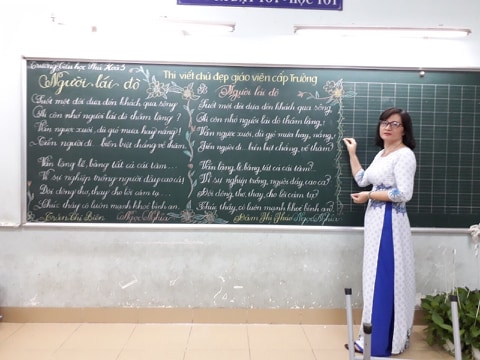 Trường Tiểu học Phú Hoà 3
Thi viết chữ đẹp giáo viên cấp Trường
Người lái đò
Suốt một đời đưa đón khách qua sông
Ai còn nhớ người lái đò thầm lặng?
Vẫn ngược xuôi, dù gió mưa hay nắng!
Tiễn người đi biền biệt chẳng về thăm.
Vẫn lặng lẽ, bằng tất cả cái tâm...
Vì sự nghiệp trồng người dãy cao cả!
Đời dòng thơ, thay cho lời cảm tạ...
Chúc thầy cô luôn mạnh khoẻ bình an.
Ngọc Nghĩa
Người lái đò
Suốt một đời đưa đón khách qua sông,
Ai còn nhớ người lái đò thầm lặng;
Vẫn ngược xuôi, dù gió mưa hay nắng,
Tiễn người đi biền biệt chẳng về thăm.
Vẫn lặng lẽ, bằng tất cả cái tâm...
Vì sự nghiệp trồng người, dãy cao cả?
Đời dòng thơ, thay cho lời cảm tạ?
Chúc thầy, cô luôn mạnh khoẻ bình an.
Ngọc Nghĩa